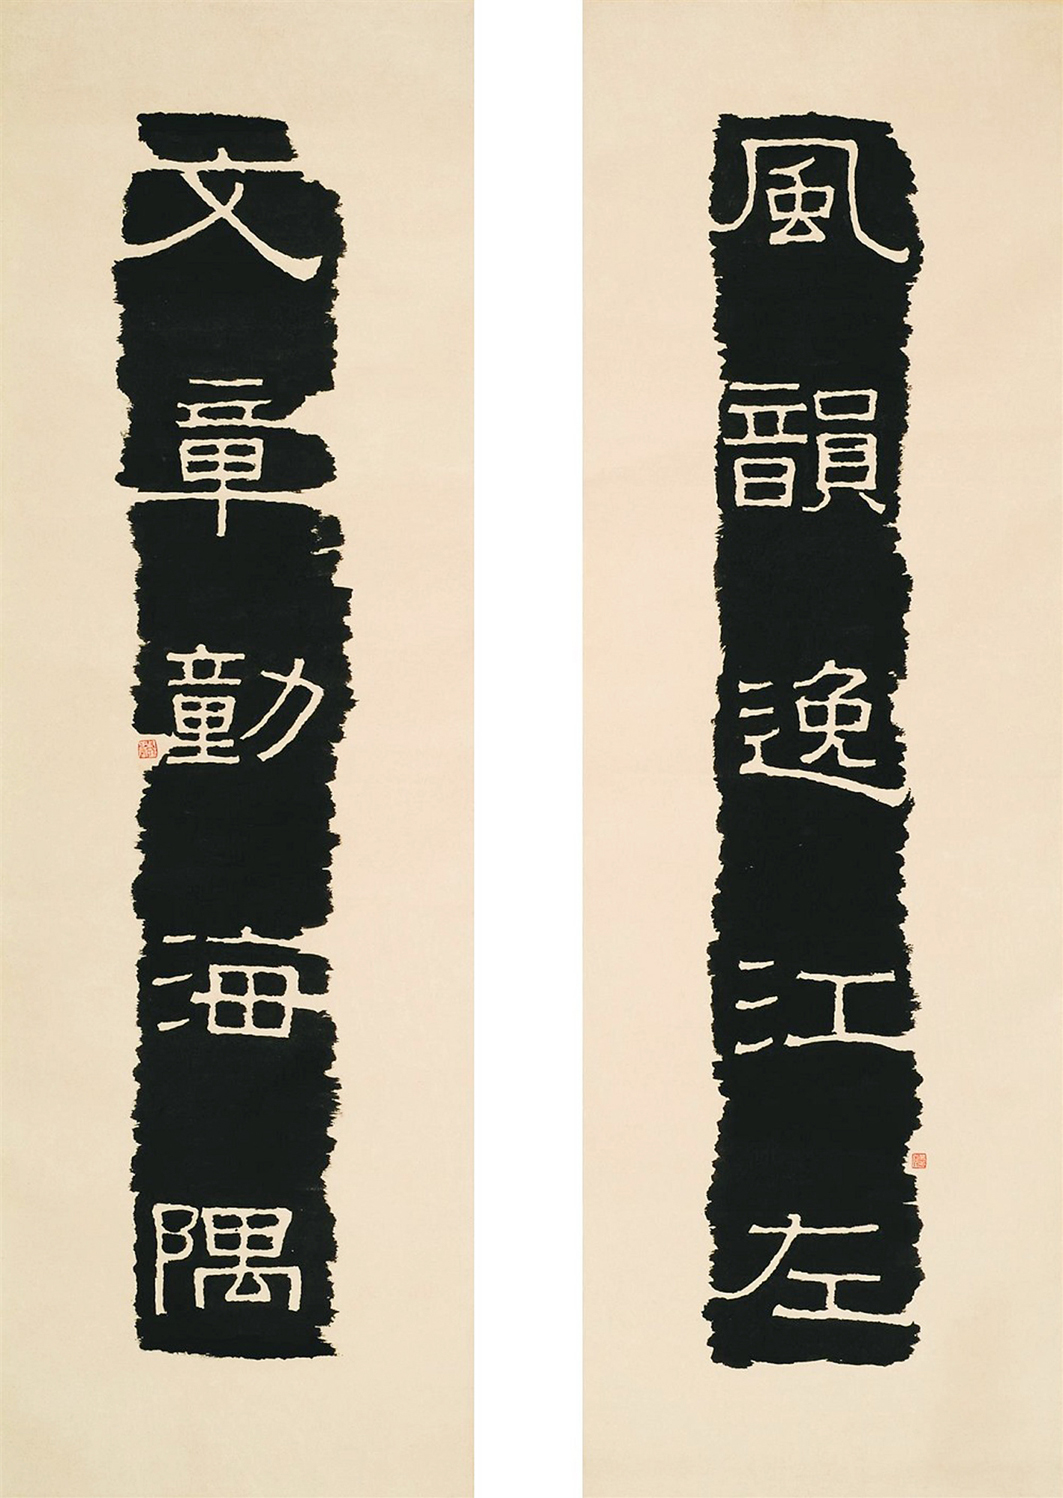 風韻逸江左
文章勭海隅